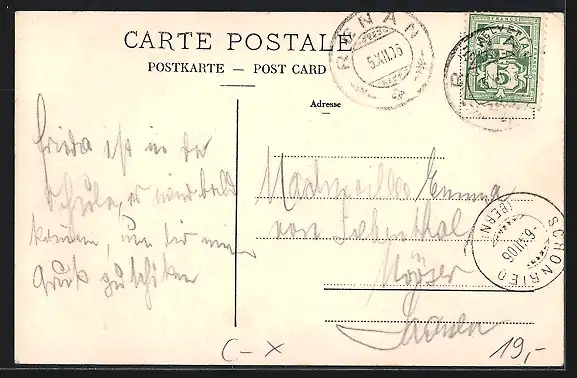 CARTE POSTALE
POSTKARTE — POST CARD
Adresse
RENAN
5.XII.06
HELVETIA
FRANCO
5
Frieda ist in der
Schule, er wird bald
kommen, um dir einen
Gruß zu schicken
Mademoiselle Emma
von Siebenthal
Saanen
SCHÖNRIED
(BERN)
-6.XII.06
C-X
19,-